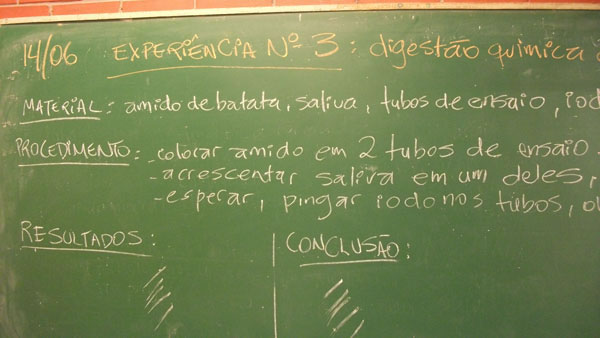 14/06 EXPERIÊNCIA Nº 3: digestão química
MATERIAL: amido de batata, saliva, tubos de ensaio, iod
PROCEDIMENTO: - colocar amido em 2 tubos de ensaio.
- acrescentar saliva em um deles,
- esperar, pingar iodo nos tubos, ob
RESULTADOS:
CONCLUSÃO: